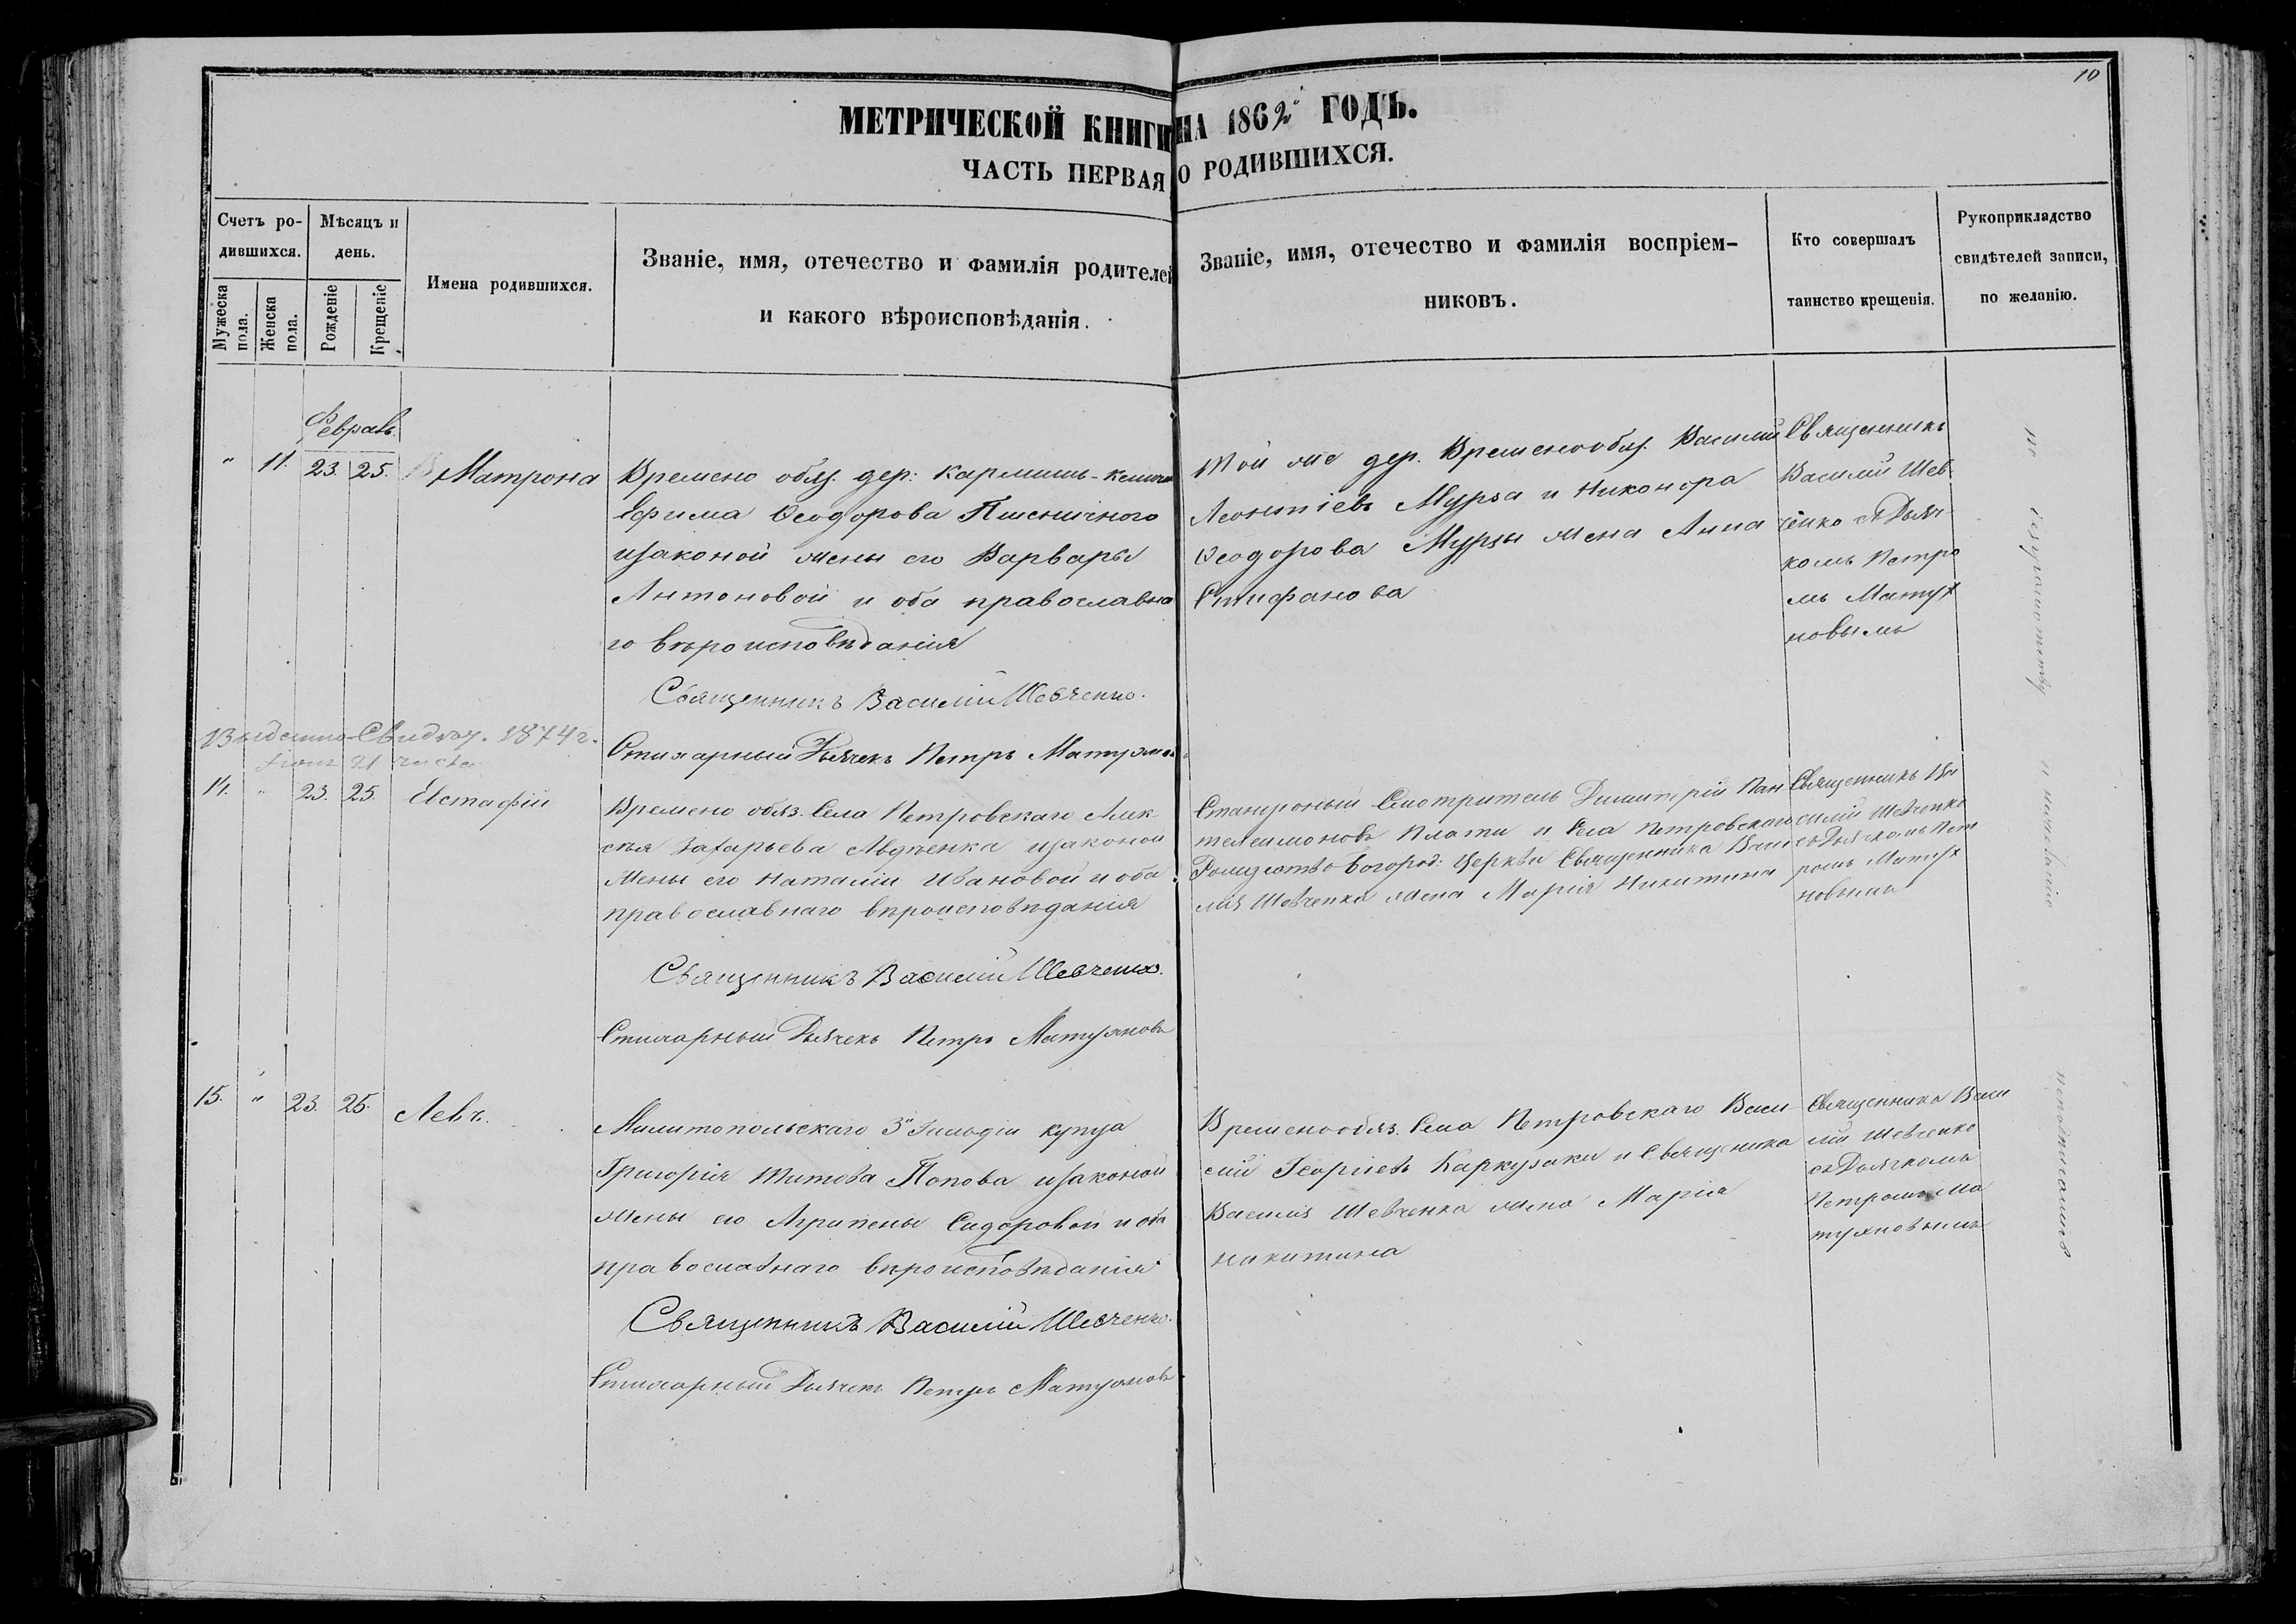 10
МЕТРИЧЕСКОЙ КНИГИ НА 1862й ГОДЪ.
ЧАСТЬ ПЕРВАЯ О РОДИВШИХСЯ.
Счетъ ро-
дившихся.
Мужеска
пола.
Женска
пола.
Мѣсяцъ и
день.
Рожденіе
Крещеніе
Имена родившихся.
Званіе, имя, отечество и фамилія родителей
и какого вѣроисповѣданія.
Званіе, имя, отечество и фамилія воспріем-
никовъ.
Кто совершалъ
таинство крещенія.
Рукоприкладство
свидѣтелей записи,
по желанію.
Феврал.
" 11. 23. 25. Матрона
Времено обяз. дер:
Ефима Ѳеодорова Пшеничного
изаконой жены его Варвары
Антоновой и оба православна
го вѣроисповѣданія
Священникъ Василій Шевченко.
Стихарный Дьячекъ Петръ
Той же дер. Временообяз. Василій
Леонтіевъ Мурза и Никонора
Ѳеодорова Мурзы жена Анна
Стифанова
Священникъ
Василій Шев
ченко съ Дьяч
комъ Петро
мъ Матух
новымъ
1874 г.
21 числа
14. " 23. 25. Евстафій
Времено обяз. Села Петровскаго Алек
сѣя Захарьева Авдѣенка изаконой
жены его Наталіи Ивановой и оба
православнаго вѣроисповѣданія
Священникъ Василій Шевченко.
Стихарный Дьячекъ Петръ Матухновъ
Смотритель Димитрій Пан
телеимоновъ Плати и Села Петровскаго
Рождество Богород: Церкви Священника Васи
лія Шевченка жена Марія Никитина
Священникъ Ва
силій Шевченко
съ Дьячкомъ Пет
ромъ Матух
новымъ
15. " 23. 25. Левъ.
Милитопольскаго 3й Гильдіи купца
Григорія Титова Попова изаконой
жены его Агрипены Сидоровой и оба
православнаго вѣроисповѣданія
Священникъ Василій Шевченко.
Стихарный Дьячекъ Петръ Матухновъ
Временообяз. Села Петровскаго Васи
лій Георгіевъ Каркузаки и Священика
Василія Шевченка жена Марія
Никитина
Священника Васи
лій Шевченко
съ Дьячкомъ
Петромъ Ма
тухновымъ
по безграмотству и нежеланію неподписались